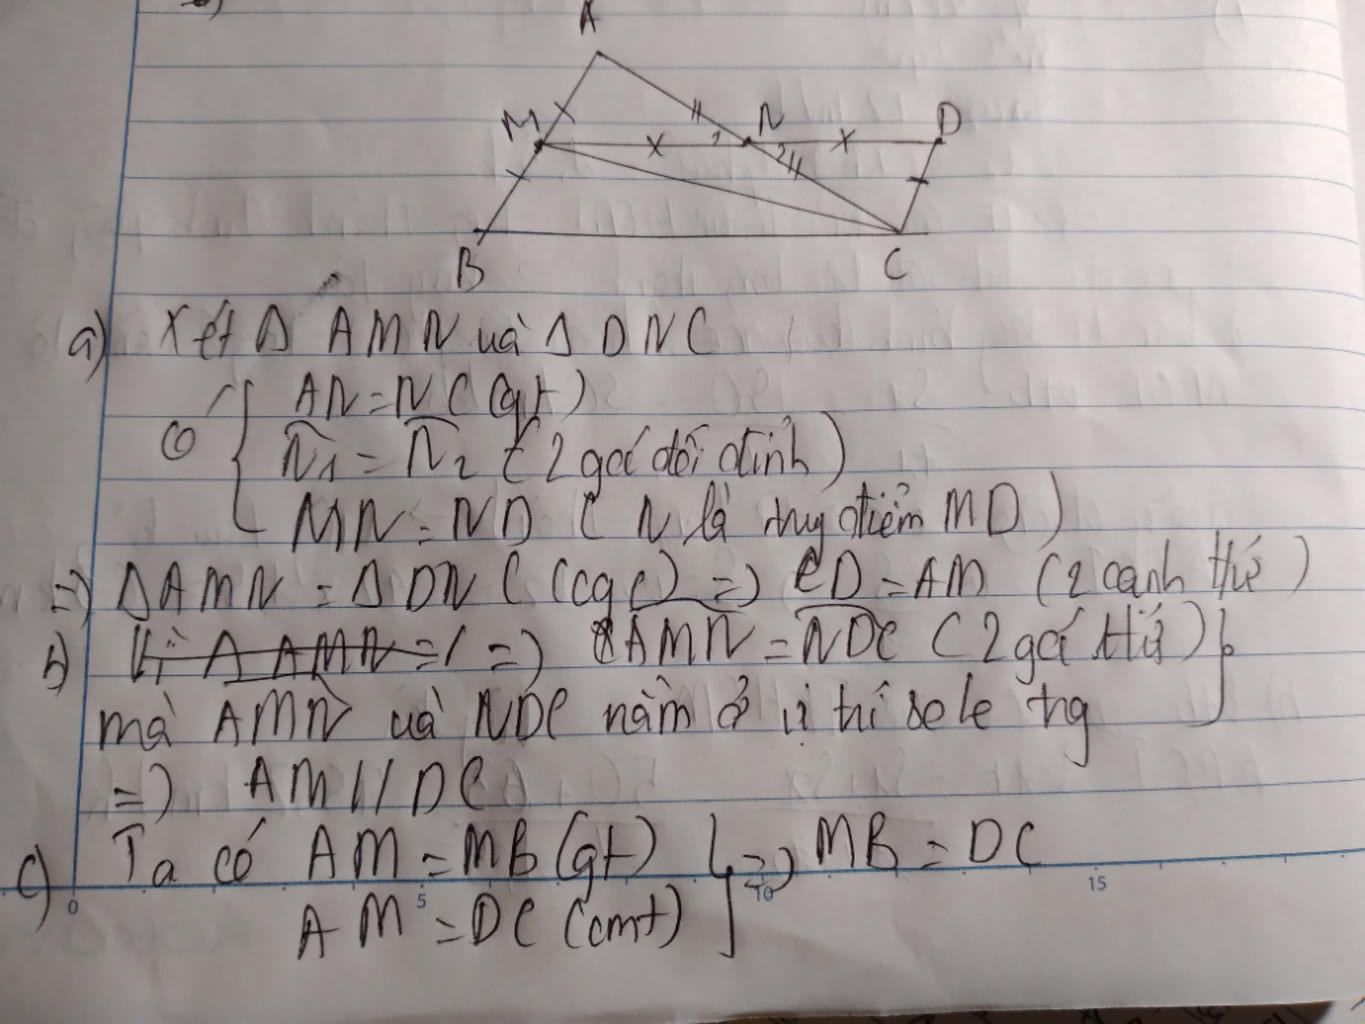 A
M
N
D
1
2
B
C
a) Xét Δ AMN và Δ DNC
Có { AN = NC (gt)
N̂1 = N̂2 (2 góc đối đỉnh)
MN = ND (N là trung điểm MD)
=) ΔAMN = ΔDNC (cgc) =) CD = AM (2 cạnh tứ)
b) Vì Δ AMN = / =) AMN = NDC (2 góc tứ) }
mà AMN và NDC nằm ở vị trí so le trg
=) AM // DC
c) Ta có AM = MB (gt) } =) MB = DC
AM = DC (cmt)
0 5 10 15